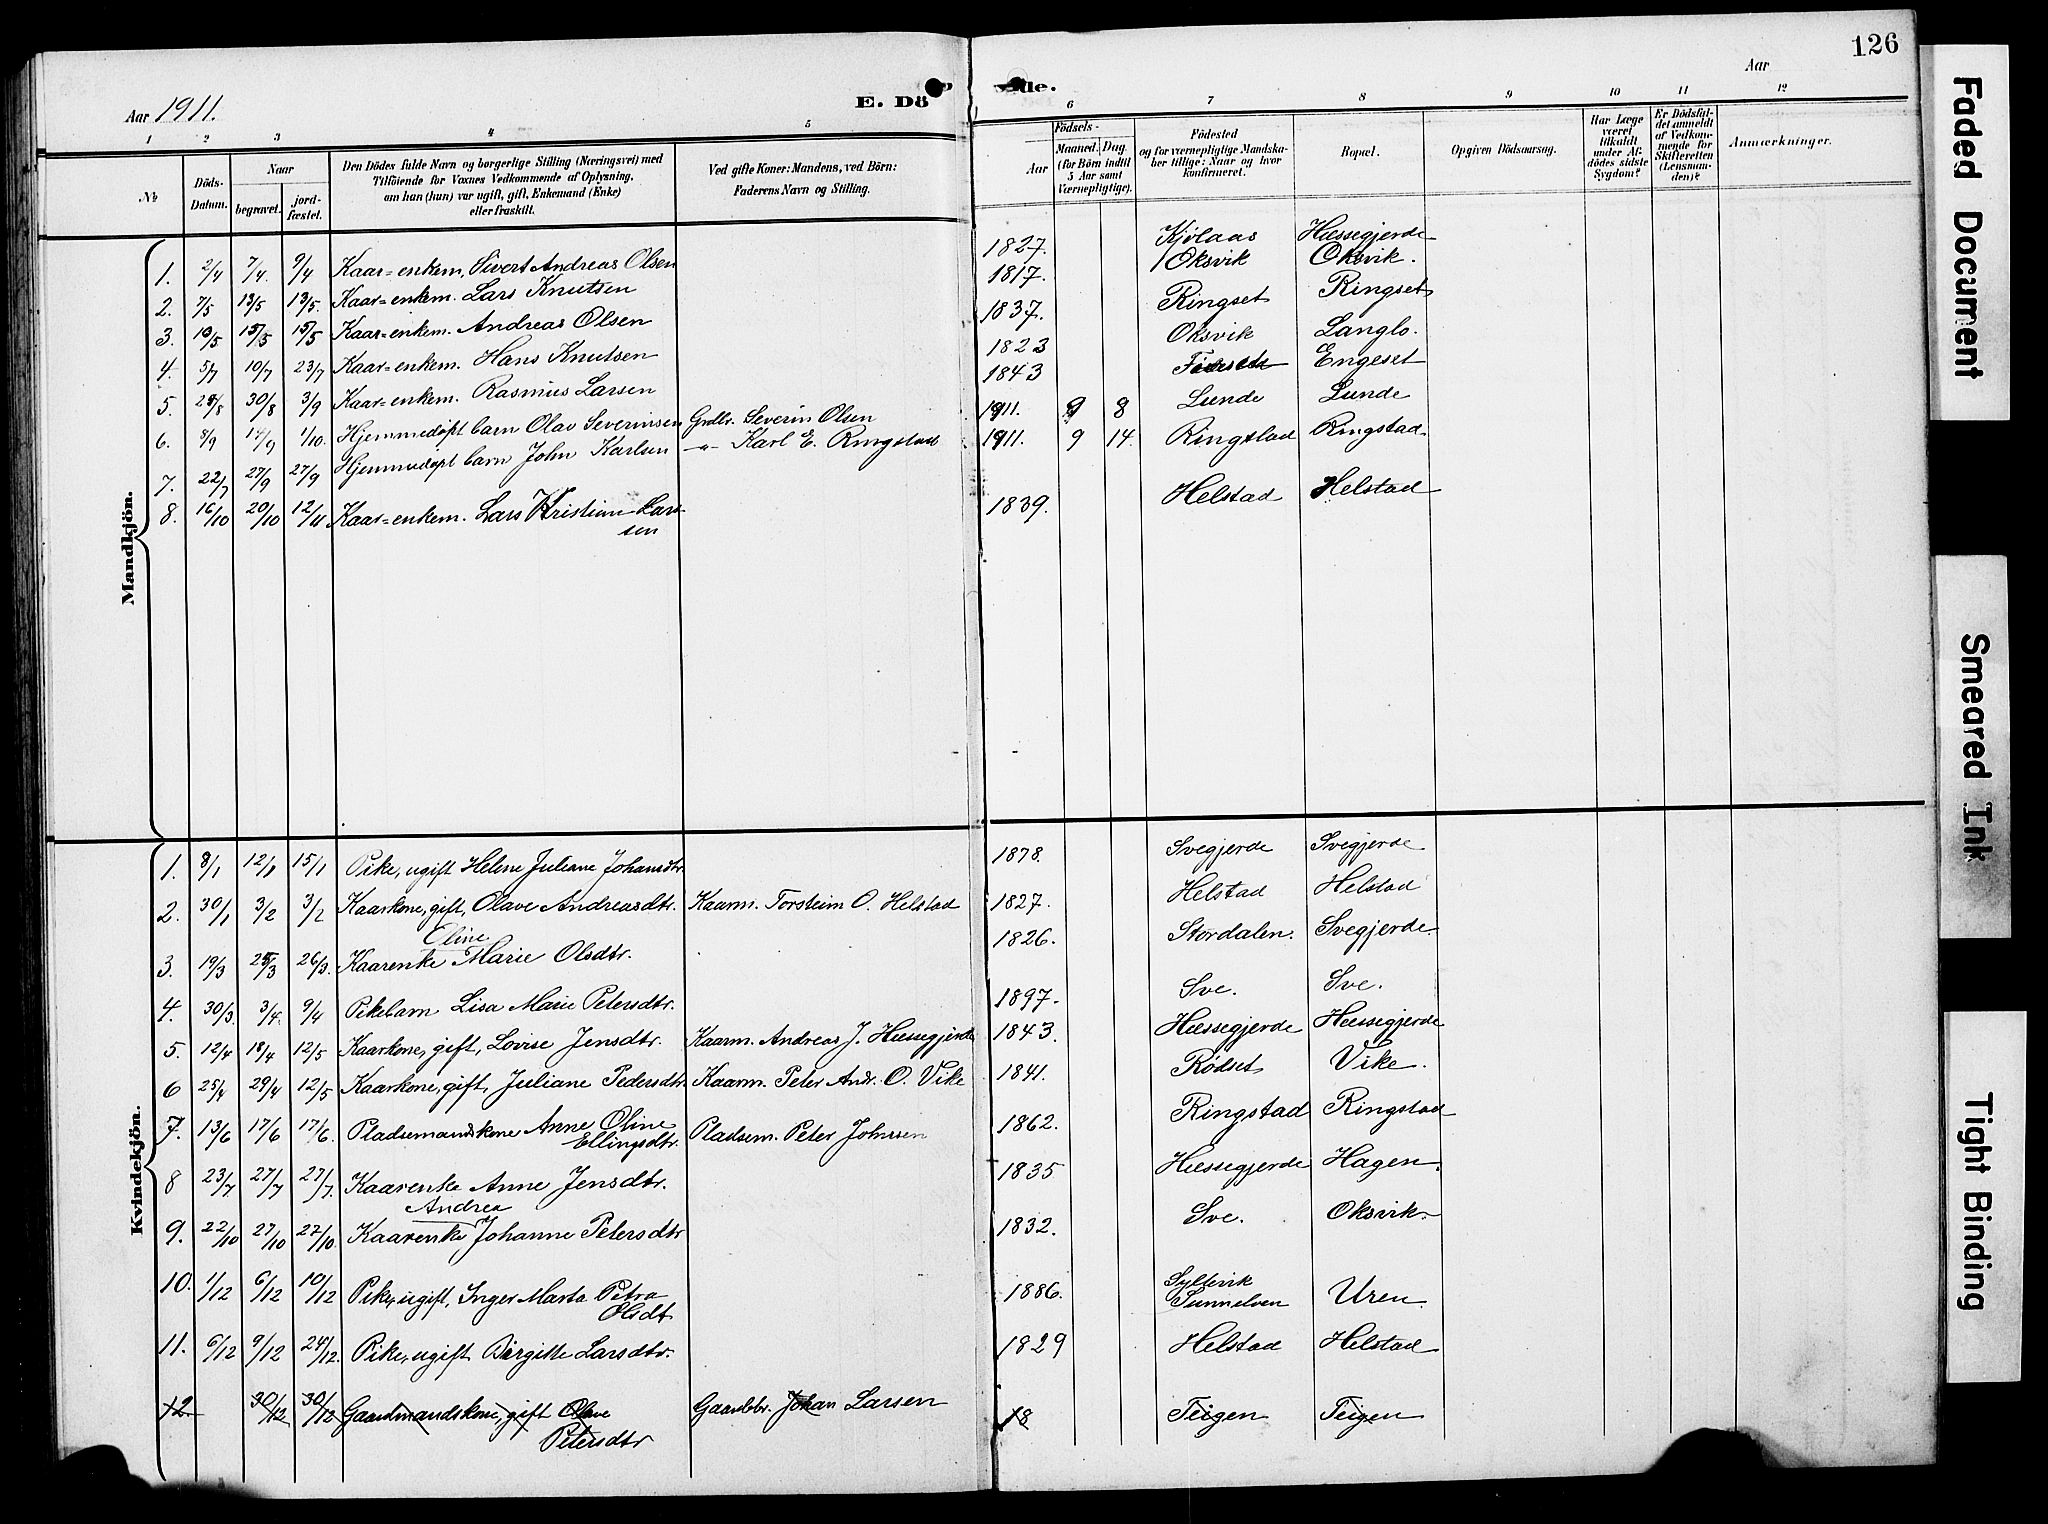 126
Aar 1911.
E. Dö
de.
Aar
1 2 3 4 5 6 7 8 9 10 11 12
No
Döds-Datum.
Naar
begravet.
jord-fæstet.
Den Dödes fulde Navn og borgerlige Stilling (Næringsvei) med
Tilföiende for Voxnes Vedkommende af Oplysning,
om han (hun) var ugift, gift, Enkemand (Enke)
eller fraskilt.
Ved gifte Koner: Mandens, ved Börn:
Faderens Navn og Stilling.
Födsels-
Aar
Maaned. Dag.
(for Börn indtil
5 Aar samt
Værnepligtige).
Födested
og for værnepligtige Mandska-
ber tillige: Naar og hvor
konfirmeret.
Bopæl.
Opgiven Dödsaarsag.
Har Læge
været
tilkaldt
under Af-
dödes sidste
Sygdom?
Er Dödsfal-
det anmeldt
af Vedkom-
mende for
Skifteretten
(Lensman-
den)?
Anmærkninger.
Mandkjön.
1. 2/4 7/4. 9/4 Kaar=enkem. Sivert Andreas Olsen 1827. Kjølaas Hæssegjerde
2. 7/5 13/5 13/5. Kaar=enkem. Lars Knutsen 1817. Oksvik Oksvik.
3. 10/5. 15/5 15/5 Kaar=enkem. Andreas Olsen 1837. Ringset Ringset
4. 5/7 10/7 23/7 Kaar=enkem. Hans Knutsen 1823 Oksvik Langlo.
5. 25/8 30/8 3/9 Kaar=enkem. Rasmus Larsen 1843 Engeset
6. 8/9 14/9 1/10. Hjemmedøpt barn Olav Severinsen Grdbr. Severin Olsen 1911. 9 8 Lunde Lunde
7. 22/7 27/9 27/9 Hjemmedøpt barn John Karlsen -"- Karl E. Ringstad 1911. 9 14. Ringstad Ringstad.
8. 16/10 20/10 12/11 Kaar=enkem. Lars Kristian Lars-
sen 1839. Helstad Helstad
Kvindekjön.
1. 8/1 12/1 15/1 Pike, ugift Helene Juliane Johansdtr. 1878. Svegjerde Svegjerde
2. 30/1 3/2 3/2 Kaarkone, gift, Olave Andreasdtr. Kaarm. Torsteim O. Helstad 1827. Helstad Helstad
Oline
3. 19/3 25/3 26/3. Kaarenke Marie Olsdtr. 1826. Stordalen. Svegjerde.
4. 30/3. 3/4. 9/4 Pikebarn Lisa Marie Petersdtr. 1897. Sve. Sve.
5. 12/4 18/4 12/5 Kaarkone, gift, Lovise Jensdtr. Kaarm. Andreas J. Hæssegjerde 1843. Hæssegjerde Hæssegjerde
6 25/4 29/4 12/5 Kaarkone, gift, Juliane Pedersdtr. Kaarm. Peter Andr. O. Vike 1841. Rødset Vike.
7. 13/6 17/6 17/6. Pladsemandskone Anne Oline
Ellingsdtr. Pladsem. Peter Johnsen 1862. Ringstad Ringstad
8 23/7 27/7 27/7. Kaarenke Anne Jensdtr. 1835 Hæssegjerde Hagen.
Andrea
9. 22/10 27/10 27/10. Kaarenke Johanne Petersdtr 1832. Sve. Oksvik.
10. 1/12 6/12 10/12 Pike, ugift, Inger Marta Petra
Olsdt 1886. Syltevik
Sunnelven Uren.
11. 6/12 9/12 24/12. Pike, ugift, Birgitte Larsdtr. 1829 Helstad Helstad
12. 30/12 30/12 Gaardmandskone, gift Olave
Petersdtr Gaardbr. Johan Larsen 18 Teigen Teigen
Faded Document
Smeared Ink
Tight Binding